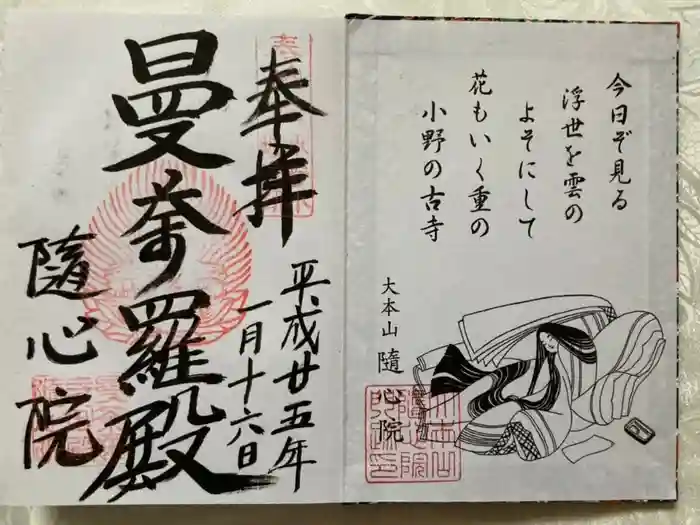 今日ぞ見る
浮世を雲の
よそにして
花もいく重の
小野の古寺
大本山 随心院
奉拝
平成廿五年
一月十六日
曼荼羅殿
随心院